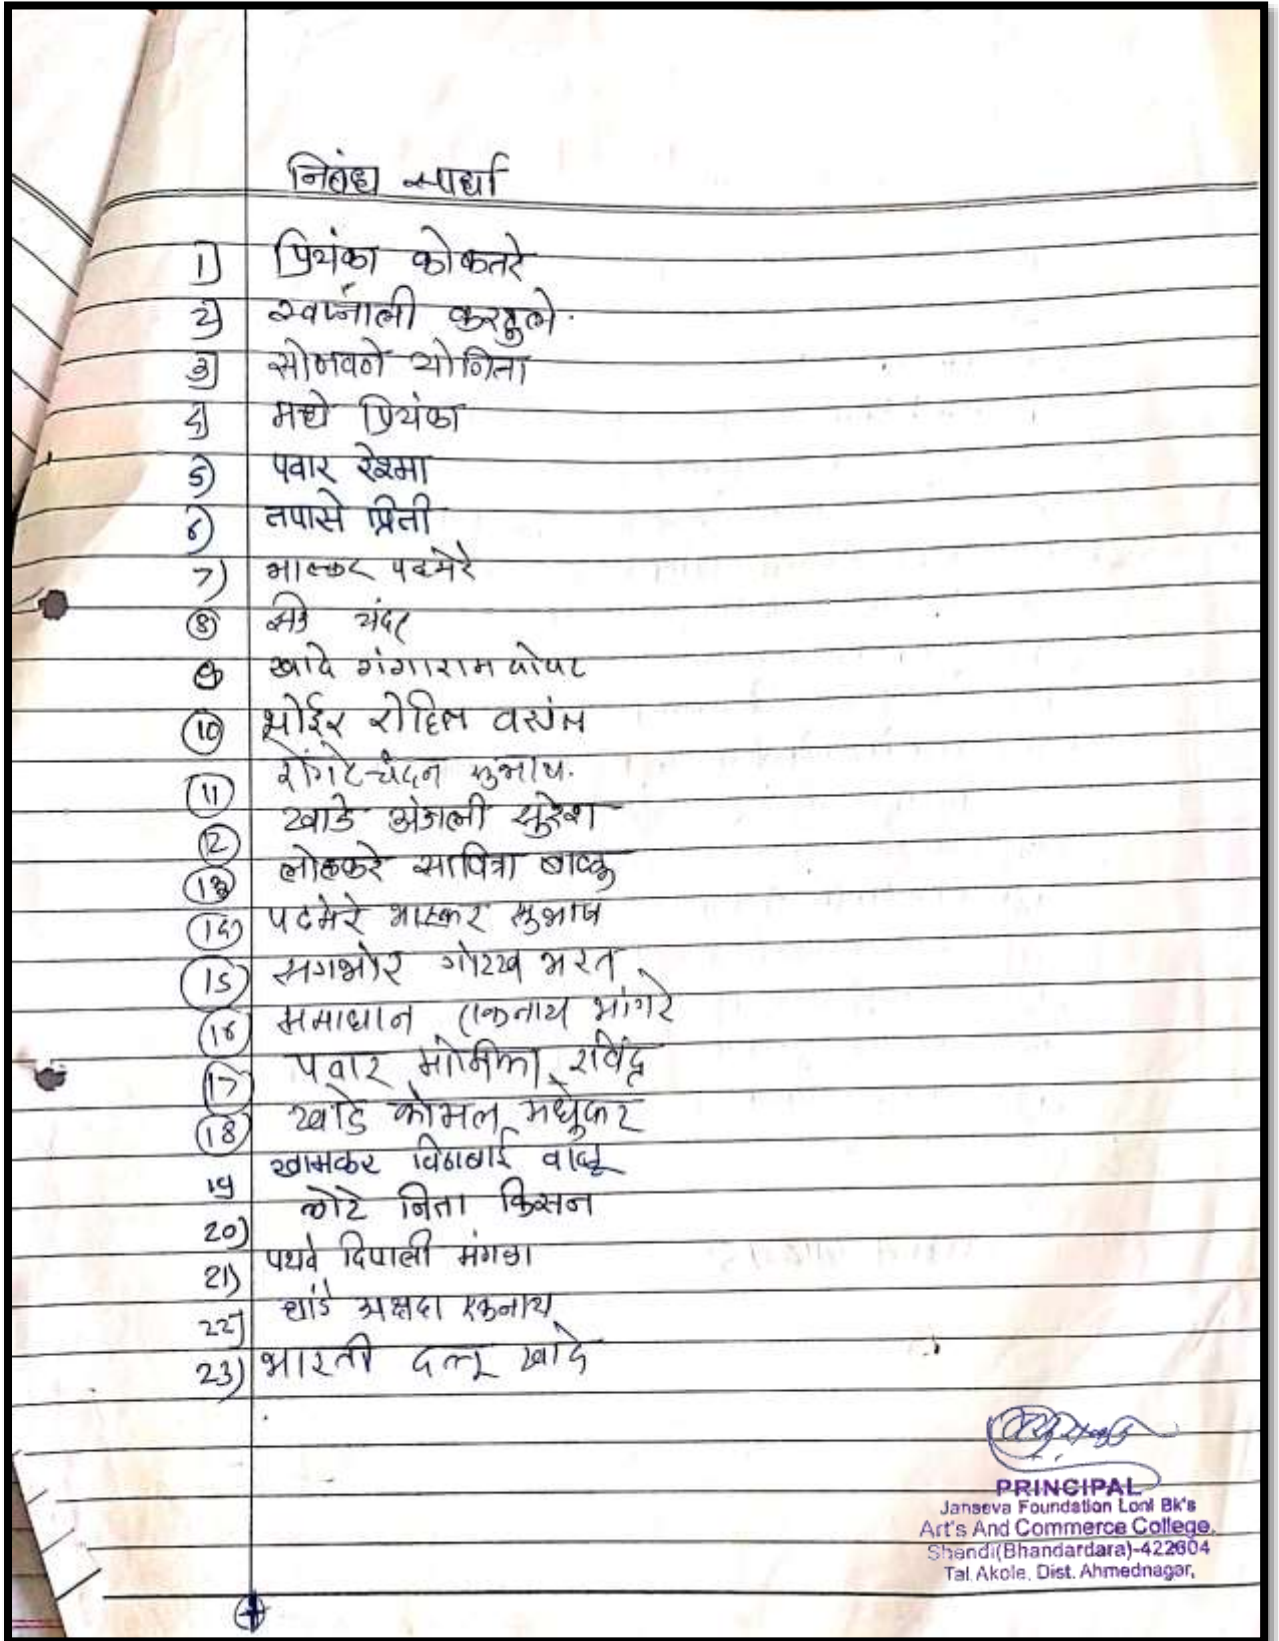 निबंध स्पर्धा
1) प्रियंका कोकतरे
2) स्वप्नाली करटुले.
3) सोनवने योगिता
4) मध्ये प्रियंका
5) पवार रेश्मा
6) तपासे प्रिती
7) भास्कर पदमेरे
8 चंदर
9 खादे गंगाराम पोपट
10 भोईर रोहित वसंत
11 रोंगटे चंदन सुभाष.
12 खाडे अंजली सुरेश
13 लोहकरे सावित्रा बाळू
14 पदमेरे भास्कर सुभाष
15 सगभोर गोरख भरत
16 समाधान एकनाथ भांगरे
17 पवार मोनिका रविंद्र
18 खाडे कोमल मधुकर
19 खामकर विठाबाई वाळू
20) लोटे निता किसन
21) पथवे दिपाली मंगळा
22) अक्षदा एकनाथ
23) भारती दत्तू खादे
PRINCIPAL
Janseva Foundation Loni Bk's
Art's And Commerce College.
Shendi(Bhandardara)-422604
Tal. Akole, Dist. Ahmednagar,